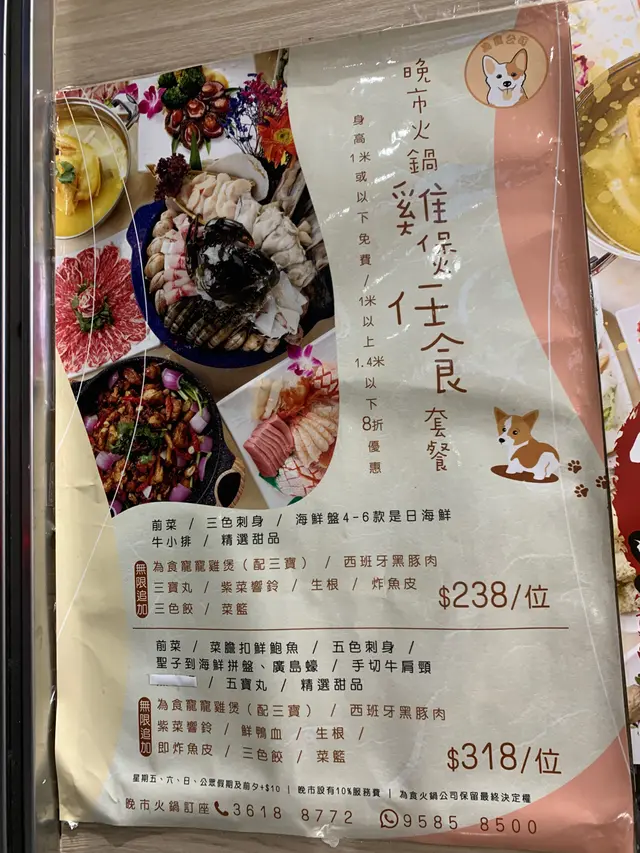 晚市火鍋雞煲任食套餐
身高1米或以下免費/1米以上1.4米以下8折優惠
前菜 / 三色刺身 / 海鮮盤4-6款是日海鮮
牛小排 / 精選甜品
無限追加
為食寵寵雞煲(配三寶) / 西班牙黑豚肉
三寶丸 / 紫菜響鈴 / 生根 / 炸魚皮
三色餃 / 菜籃
$238/位
前菜 / 菜膽扣鮮鮑魚 / 五色刺身 /
聖子到海鮮拼盤、廣島蠔 / 手切牛肩頸
/ 五寶丸 / 精選甜品
無限追加
為食寵寵雞煲(配三寶) / 西班牙黑豚肉
紫菜響鈴 / 鮮鴨血 / 生根 /
即炸魚皮 / 三色餃 / 菜籃
$318/位
星期五、六、日、公眾假期及前夕+$10 | 晚市設有10%服務費 | 為食火鍋公司保留最終決定權
晚市火鍋訂座 3618 8772 9585 8500